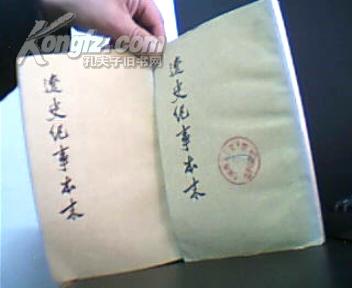 Kongfz.com
孔夫子旧书网
遼史纪事本末
遼史纪事本末